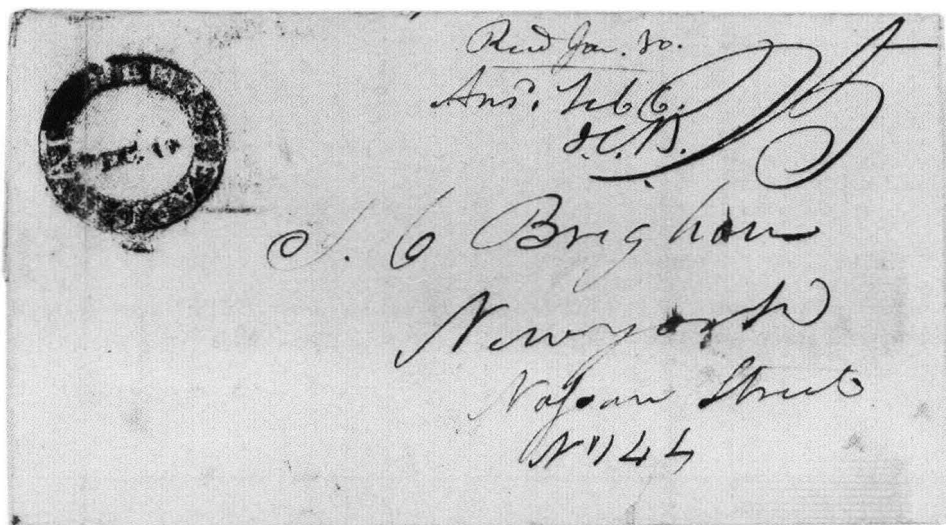 Recd Jan. 30.
Ansd. Feb 6.
J.C.B.
25
J. C Brigham
Newyork
Nassau Street
No 144
DEC. 19